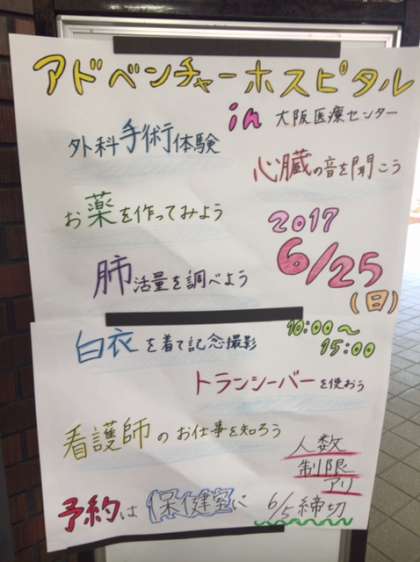 アドベンチャーホスピタル
in 大阪医療センター
外科手術体験
心臓の音を聞こう
お薬を作ってみよう
2017
6/25
(日)
肺活量を調べよう
10:00～
15:00
白衣を着て記念撮影
トランシーバーを使おう
看護師のお仕事を知ろう
人数
制限
アリ
予約は保健室に
6/5締切